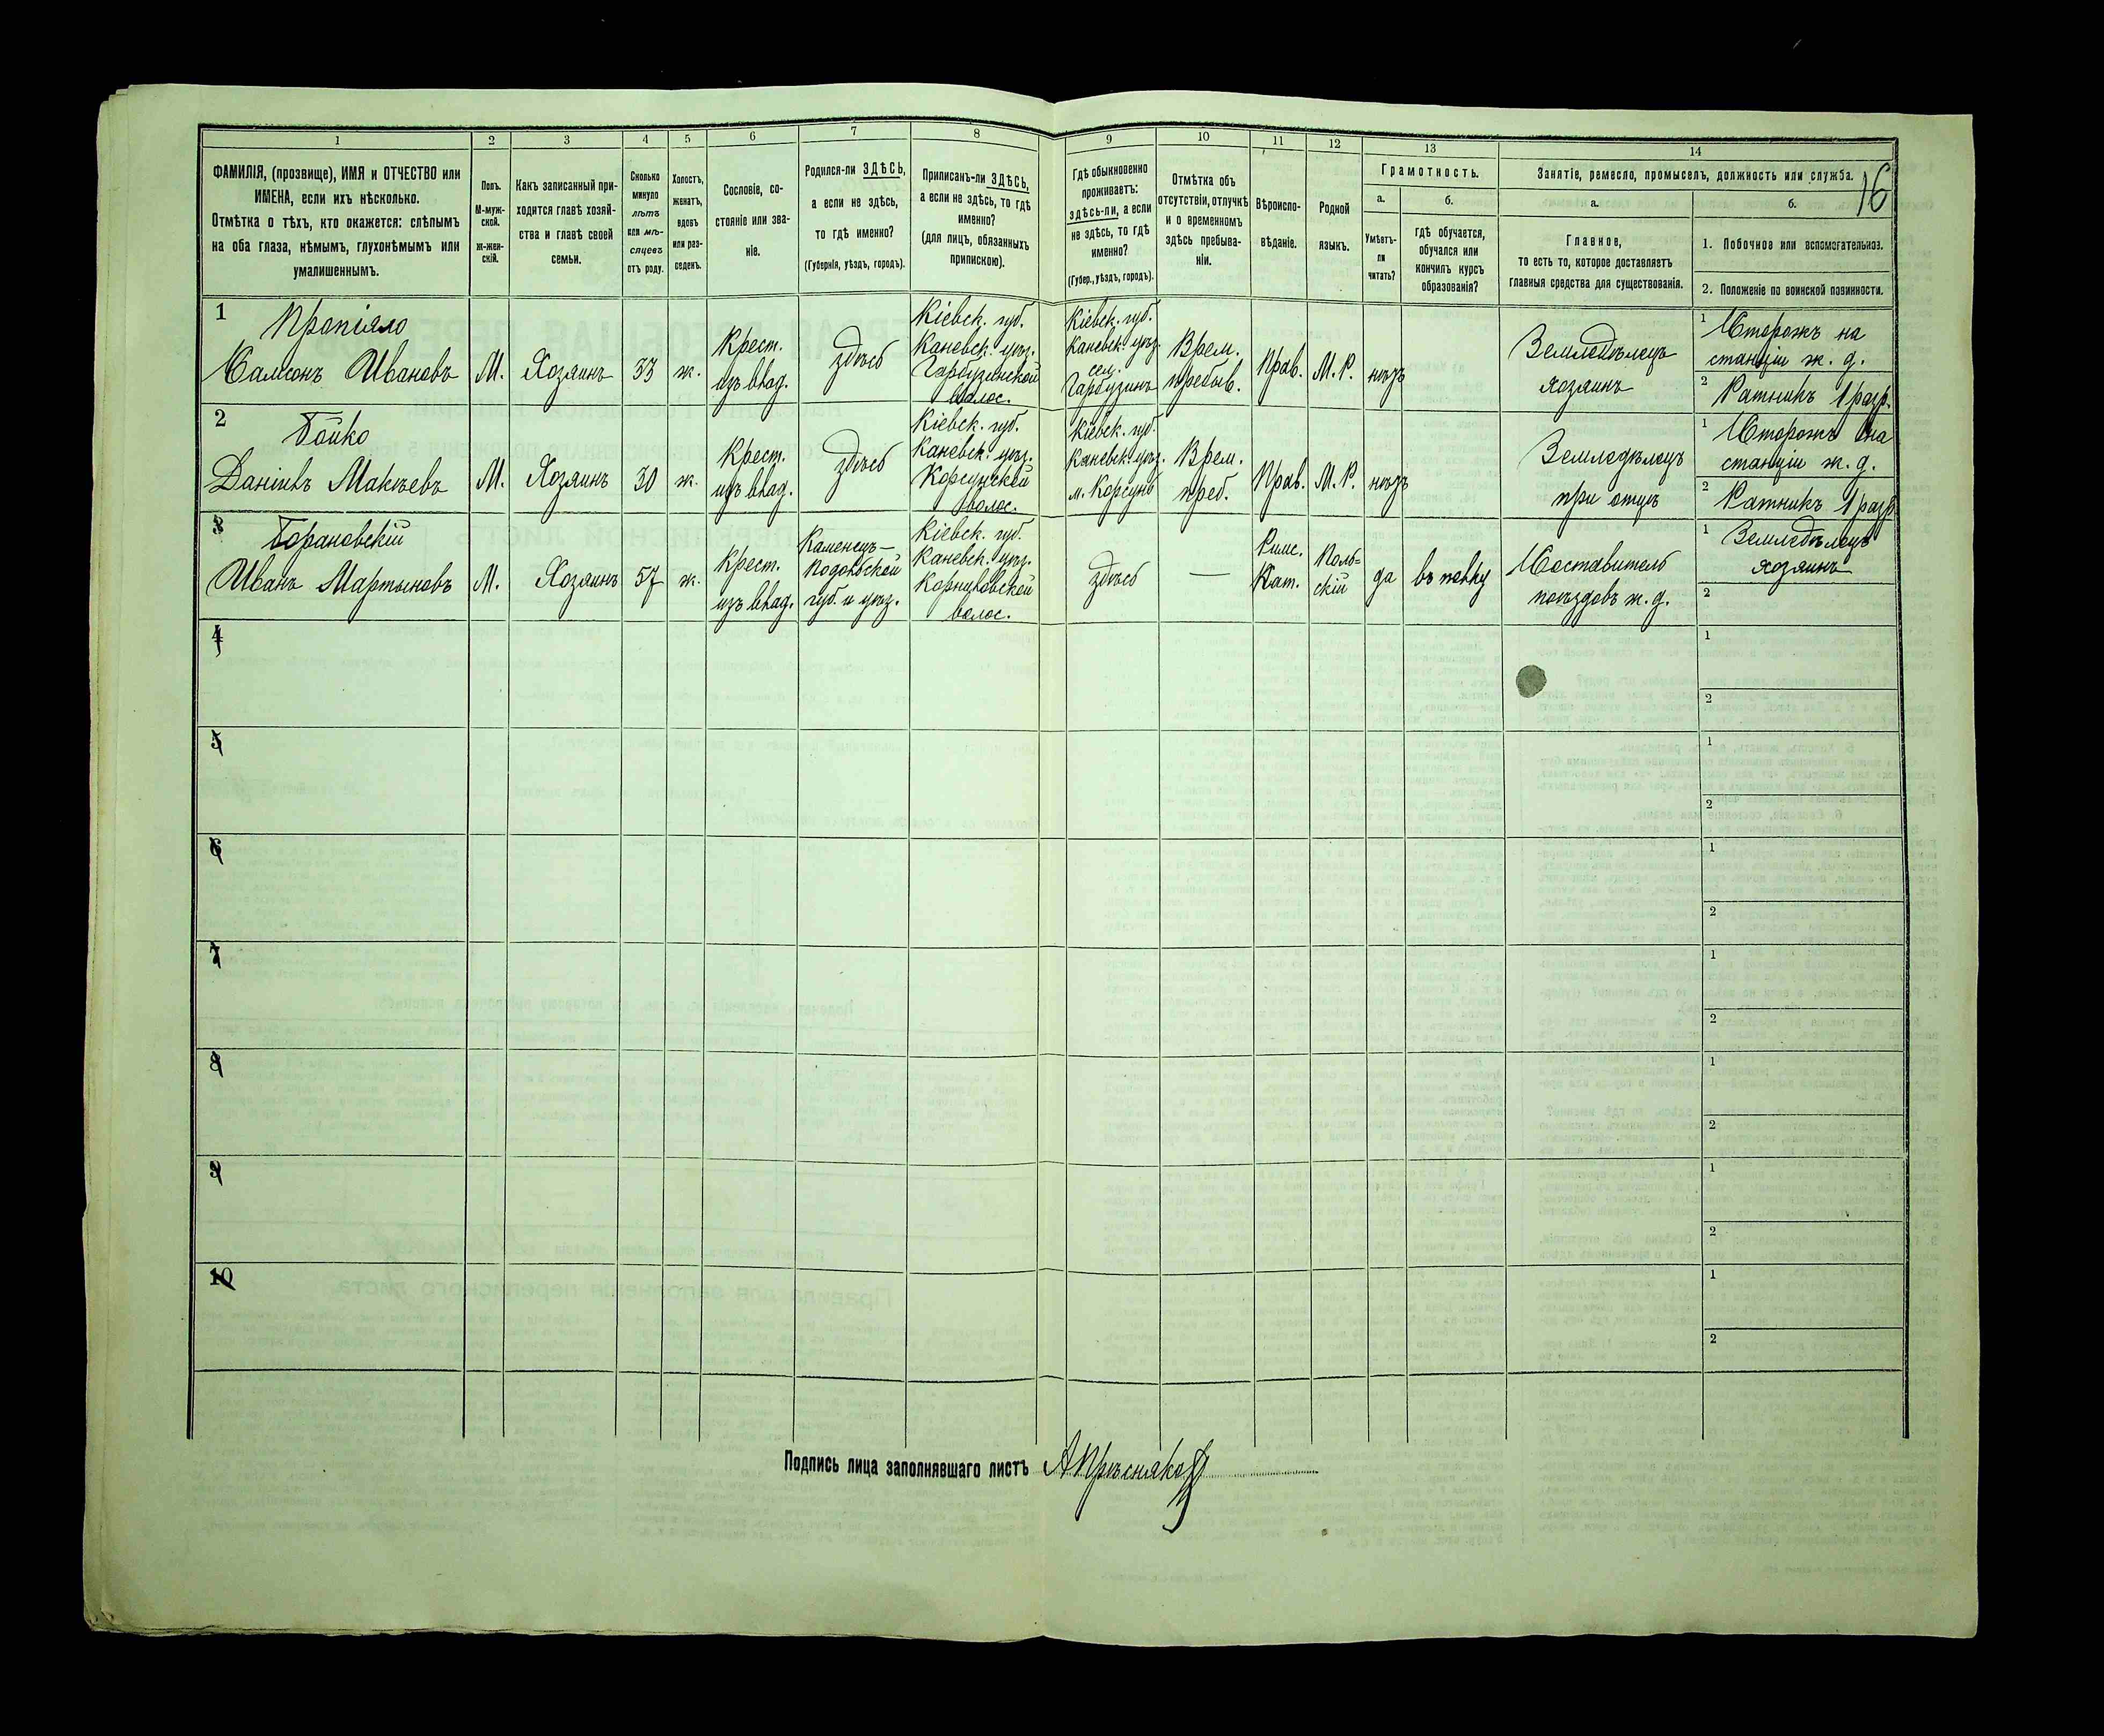 1 2 3 4 5 6 7 8 9 10 11 12 13 14
16
ФАМИЛІЯ, (прозвище), ИМЯ и ОТЧЕСТВО или
ИМЕНА, если ихъ нѣсколько.
Отмѣтка о тѣхъ, кто окажется: слѣпымъ
на оба глаза, нѣмымъ, глухонѣмымъ или
умалишеннымъ.
Полъ.
М-муж-
ской.
ж-жен-
скій.
Какъ записанный при-
ходится главѣ хозяй-
ства и главѣ своей
семьи.
Сколько
минуло
лѣтъ
или мѣ-
сяцевъ
отъ роду.
Холостъ,
женатъ,
вдовъ
или раз-
веденъ.
Сословіе, со-
стояніе или зва-
ніе.
Родился-ли ЗДѢСЬ,
а если не здѣсь,
то гдѣ именно?
(Губернія, уѣздъ, городъ).
Приписанъ-ли ЗДѢСЬ,
а если не здѣсь, то гдѣ
именно?
(для лицъ, обязанныхъ
припискою).
Гдѣ обыкновенно
проживаетъ:
здѣсь-ли, а если
не здѣсь, то гдѣ
именно?
(Губер., уѣздъ, городъ).
Отмѣтка объ
отсутствіи, отлучкѣ
и о временномъ
здѣсь пребыва-
ніи.
Вѣроиспо-
вѣданіе.
Родной
языкъ.
Грамотность.
а.
Умѣетъ-
ли
читать?
б.
гдѣ обучается,
обучался или
кончилъ курсъ
образованія?
Занятіе, ремесло, промыселъ, должность или служба.
а.
Главное,
то есть то, которое доставляетъ
главныя средства для существованія.
б.
1. Побочное или вспомогательное.
2. Положеніе по воинской повинности.
1
Самсонъ Ивановъ
М.
Хозяинъ
33
ж.
Крест.
изъ влад.
здѣсь
Кіевск. губ.
Каневск. уѣз.
Гарбузинской
волос.
Кіевск. губ.
Каневск. уѣз.
сел.
Гарбузинъ
Врем.
пребыв.
Прав.
М. Р.
нѣтъ
Земледѣлецъ
хозяинъ
1 Сторожъ на
станціи ж. д.
2 Ратникъ 1 разр.
2
Бойко
Даніилъ Макѣевъ
М.
Хозяинъ
30
ж.
Крест.
изъ влад.
здѣсь
Кіевск. губ.
Каневск. уѣз.
Корсунской
волос.
Кіевск. губ.
Каневск. уѣз.
м. Корсунь
Врем.
преб.
Прав.
М. Р.
нѣтъ
Земледѣлецъ
при отцѣ
1 Сторожъ на
станціи ж. д.
2 Ратникъ 1 разр.
3
Борановскій
Иванъ Мартыновъ
М.
Хозяинъ
57
ж.
Крест.
изъ влад.
Каменецъ-
Подольской
губ. и уѣз.
Кіевск. губ.
Каневск. уѣз.
волос.
здѣсь
—
Римс.
Кат.
Поль-
скій
да
въ полку
Составитель
поѣздовъ ж. д.
1 Земледѣлецъ
хозяинъ
2
4
1
2
5
1
2
6
1
2
7
1
2
8
1
2
9
1
2
10
1
2
Подпись лица заполнявшаго листъ АПрѣсняковъ